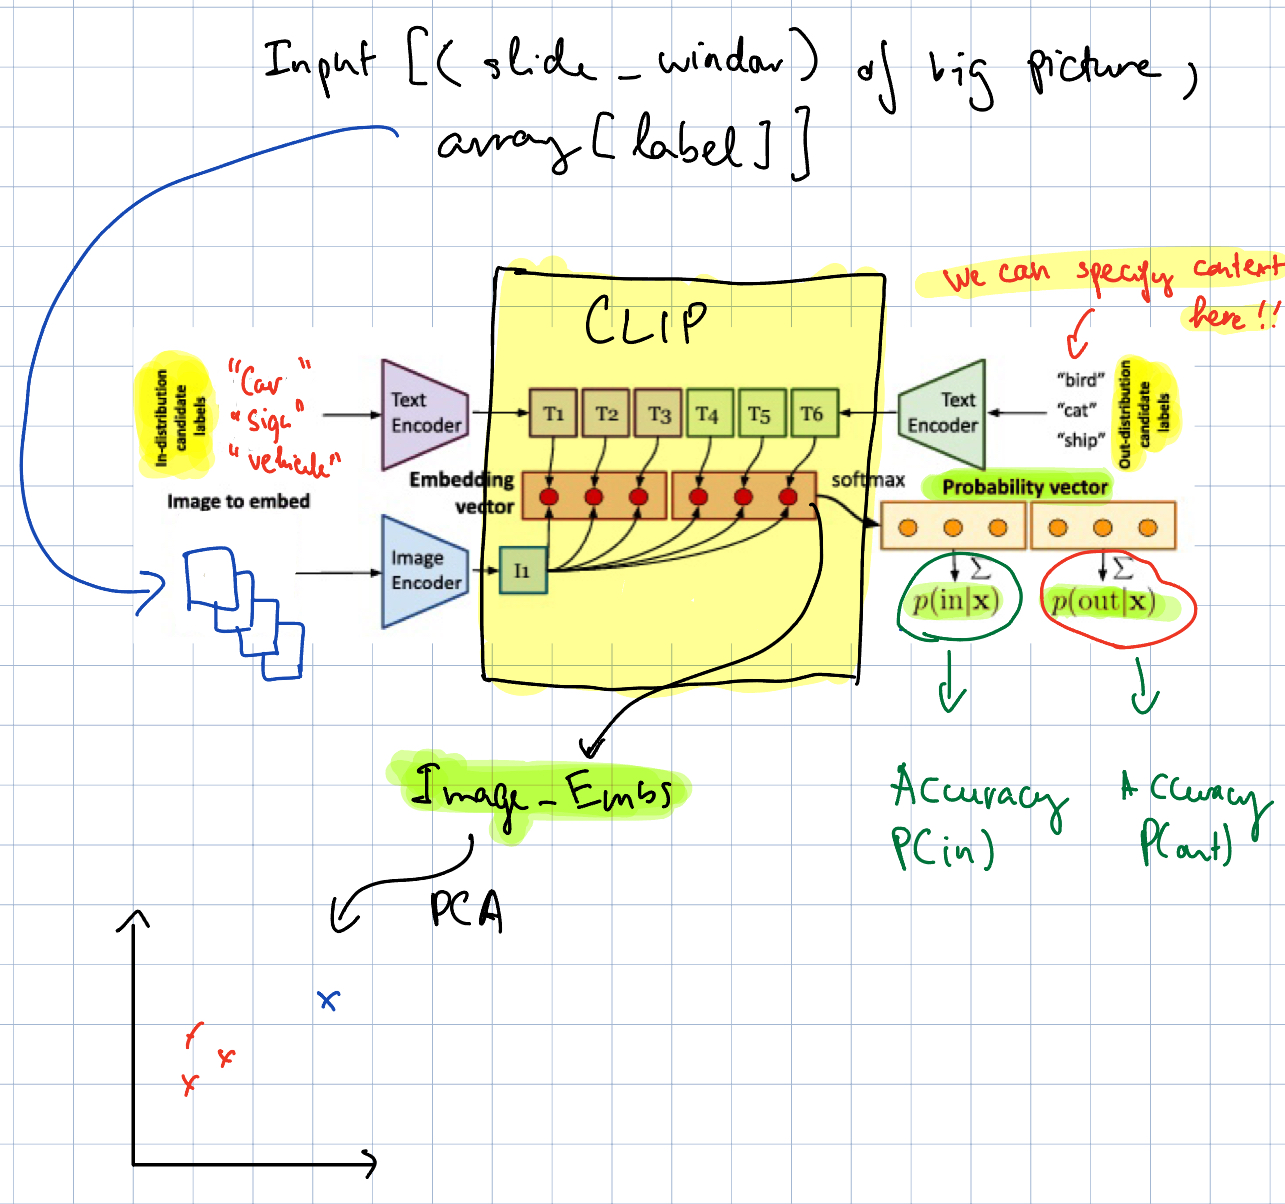 Input [( slide _ window) of big picture,
array [label]]
we can specify context
here!!
CLIP
In-distribution
candidate
labels
"Car"
"Sign"
"vehicule"
Text
Encoder
T1 T2 T3 T4 T5 T6
Text
Encoder
"bird"
"cat"
"ship"
Out-distribution
candidate
labels
Image to embed
Embedding
vector
softmax
Probability vector
Image
Encoder
I1
Σ
p(in|x)
Σ
p(out|x)
Image_Embs
Accuracy
P(in)
Accuracy
P(out)
PCA